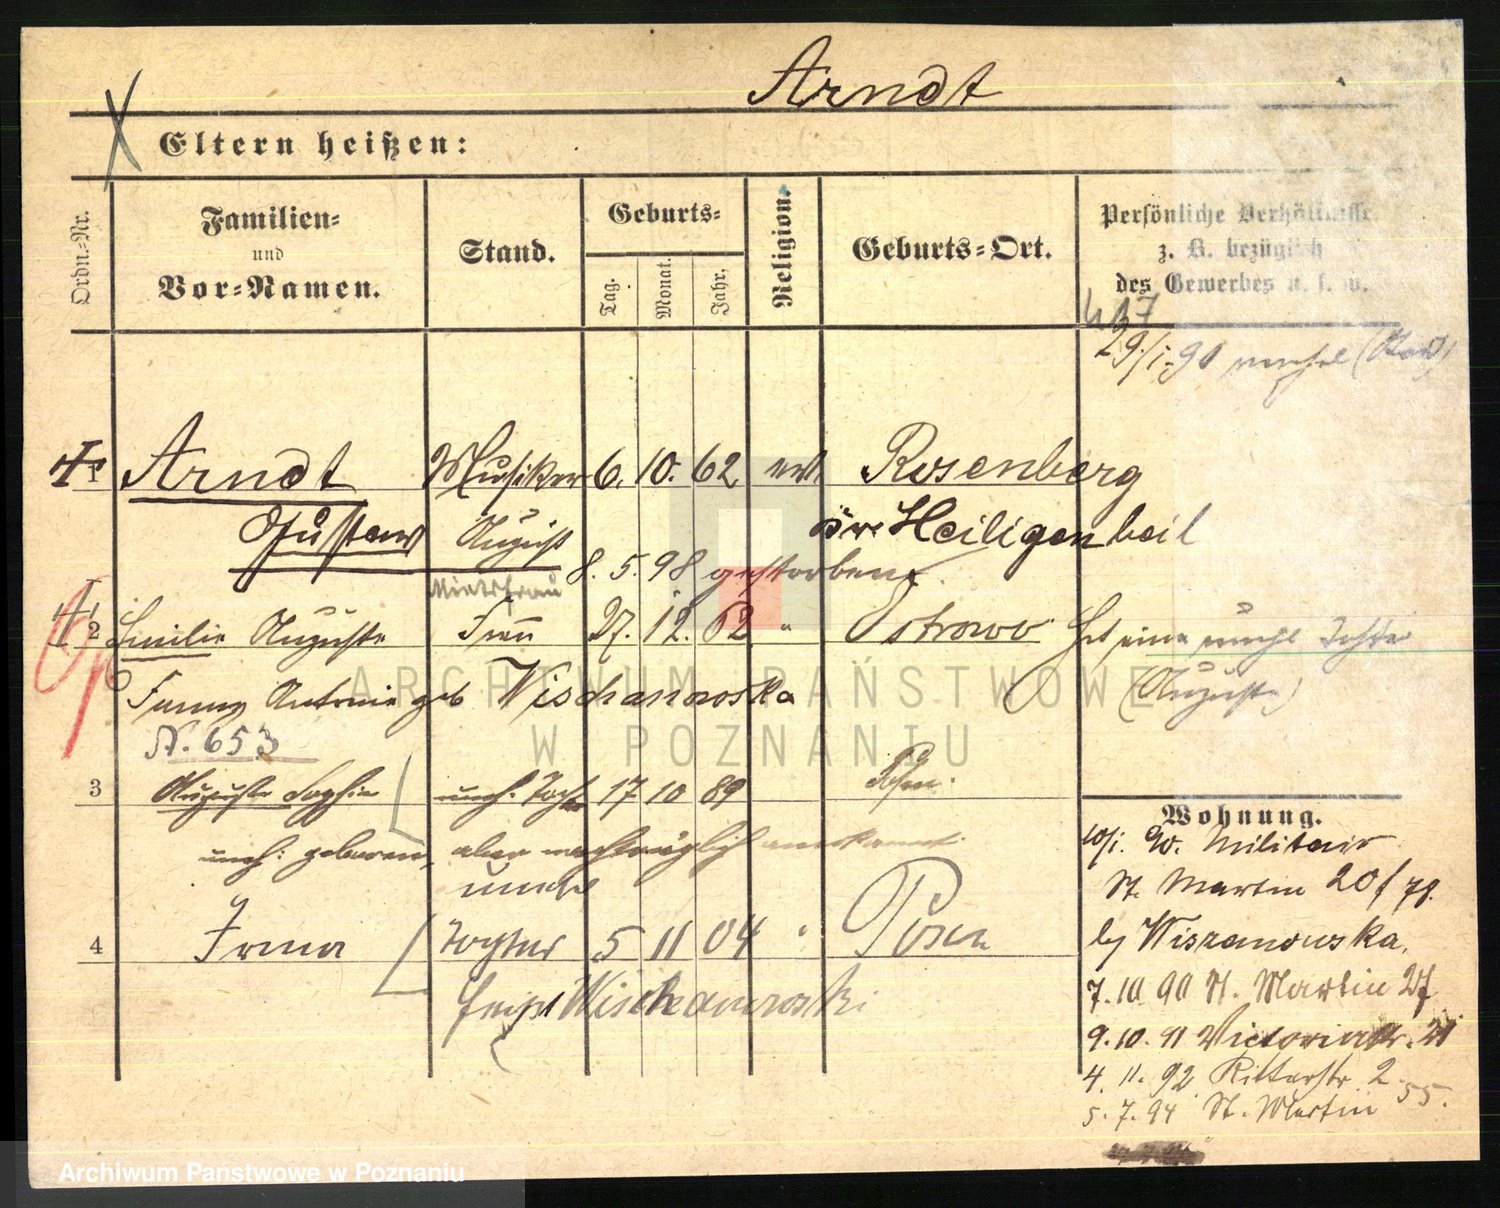 Arndt
Eltern heißen:
Ordn.-Nr.
Familien-
und
Vor-Namen.
Stand.
Geburts-
Tag.
Monat.
Jahr.
Religion.
Geburts-Ort.
Persönliche Verhältnisse
z. B. bezüglich
des Gewerbes u. s. w.
29/1.90
1 Arndt Musiker 6. 10. 62 Rosenberg
Gustav August Kr. Heiligenbeil
8. 5. 98 gestorben
Mietsfrau
2 Emilie Auguste Frau 27. 12. 62 " Ostrowo Hat eine unehl Tochter
(Auguste)
Fanny Antonie geb Wischanowska
N. 653
3 Auguste Sophie unehl. Tochter 17 10 89 Posen
Wohnung.
unehl. geboren, aber nachträglich anerkannt.
unehel
4 Irma Tochter 5 11 04 " Posen
heißt Wischanowski
W. Militair
St. Martin 20/78.
b/ Wiszanowska.
7. 10 90 St. Martin 27
9. 10. 91 Victoriastr. 21
4. 11. 92 Ritterstr 2
5. 7. 94 St. Martin 55.
ARCHIWUM PAŃSTWOWE
W POZNANIU
Archiwum Państwowe w Poznaniu